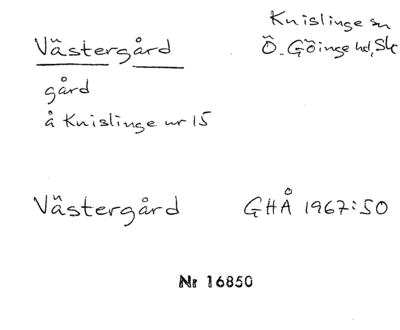 Västergård
Knislinge sn
Ö. Göinge hd, Sk
gård
å Knislinge nr 15
Västergård GHÅ 1967:50
Nr 16850